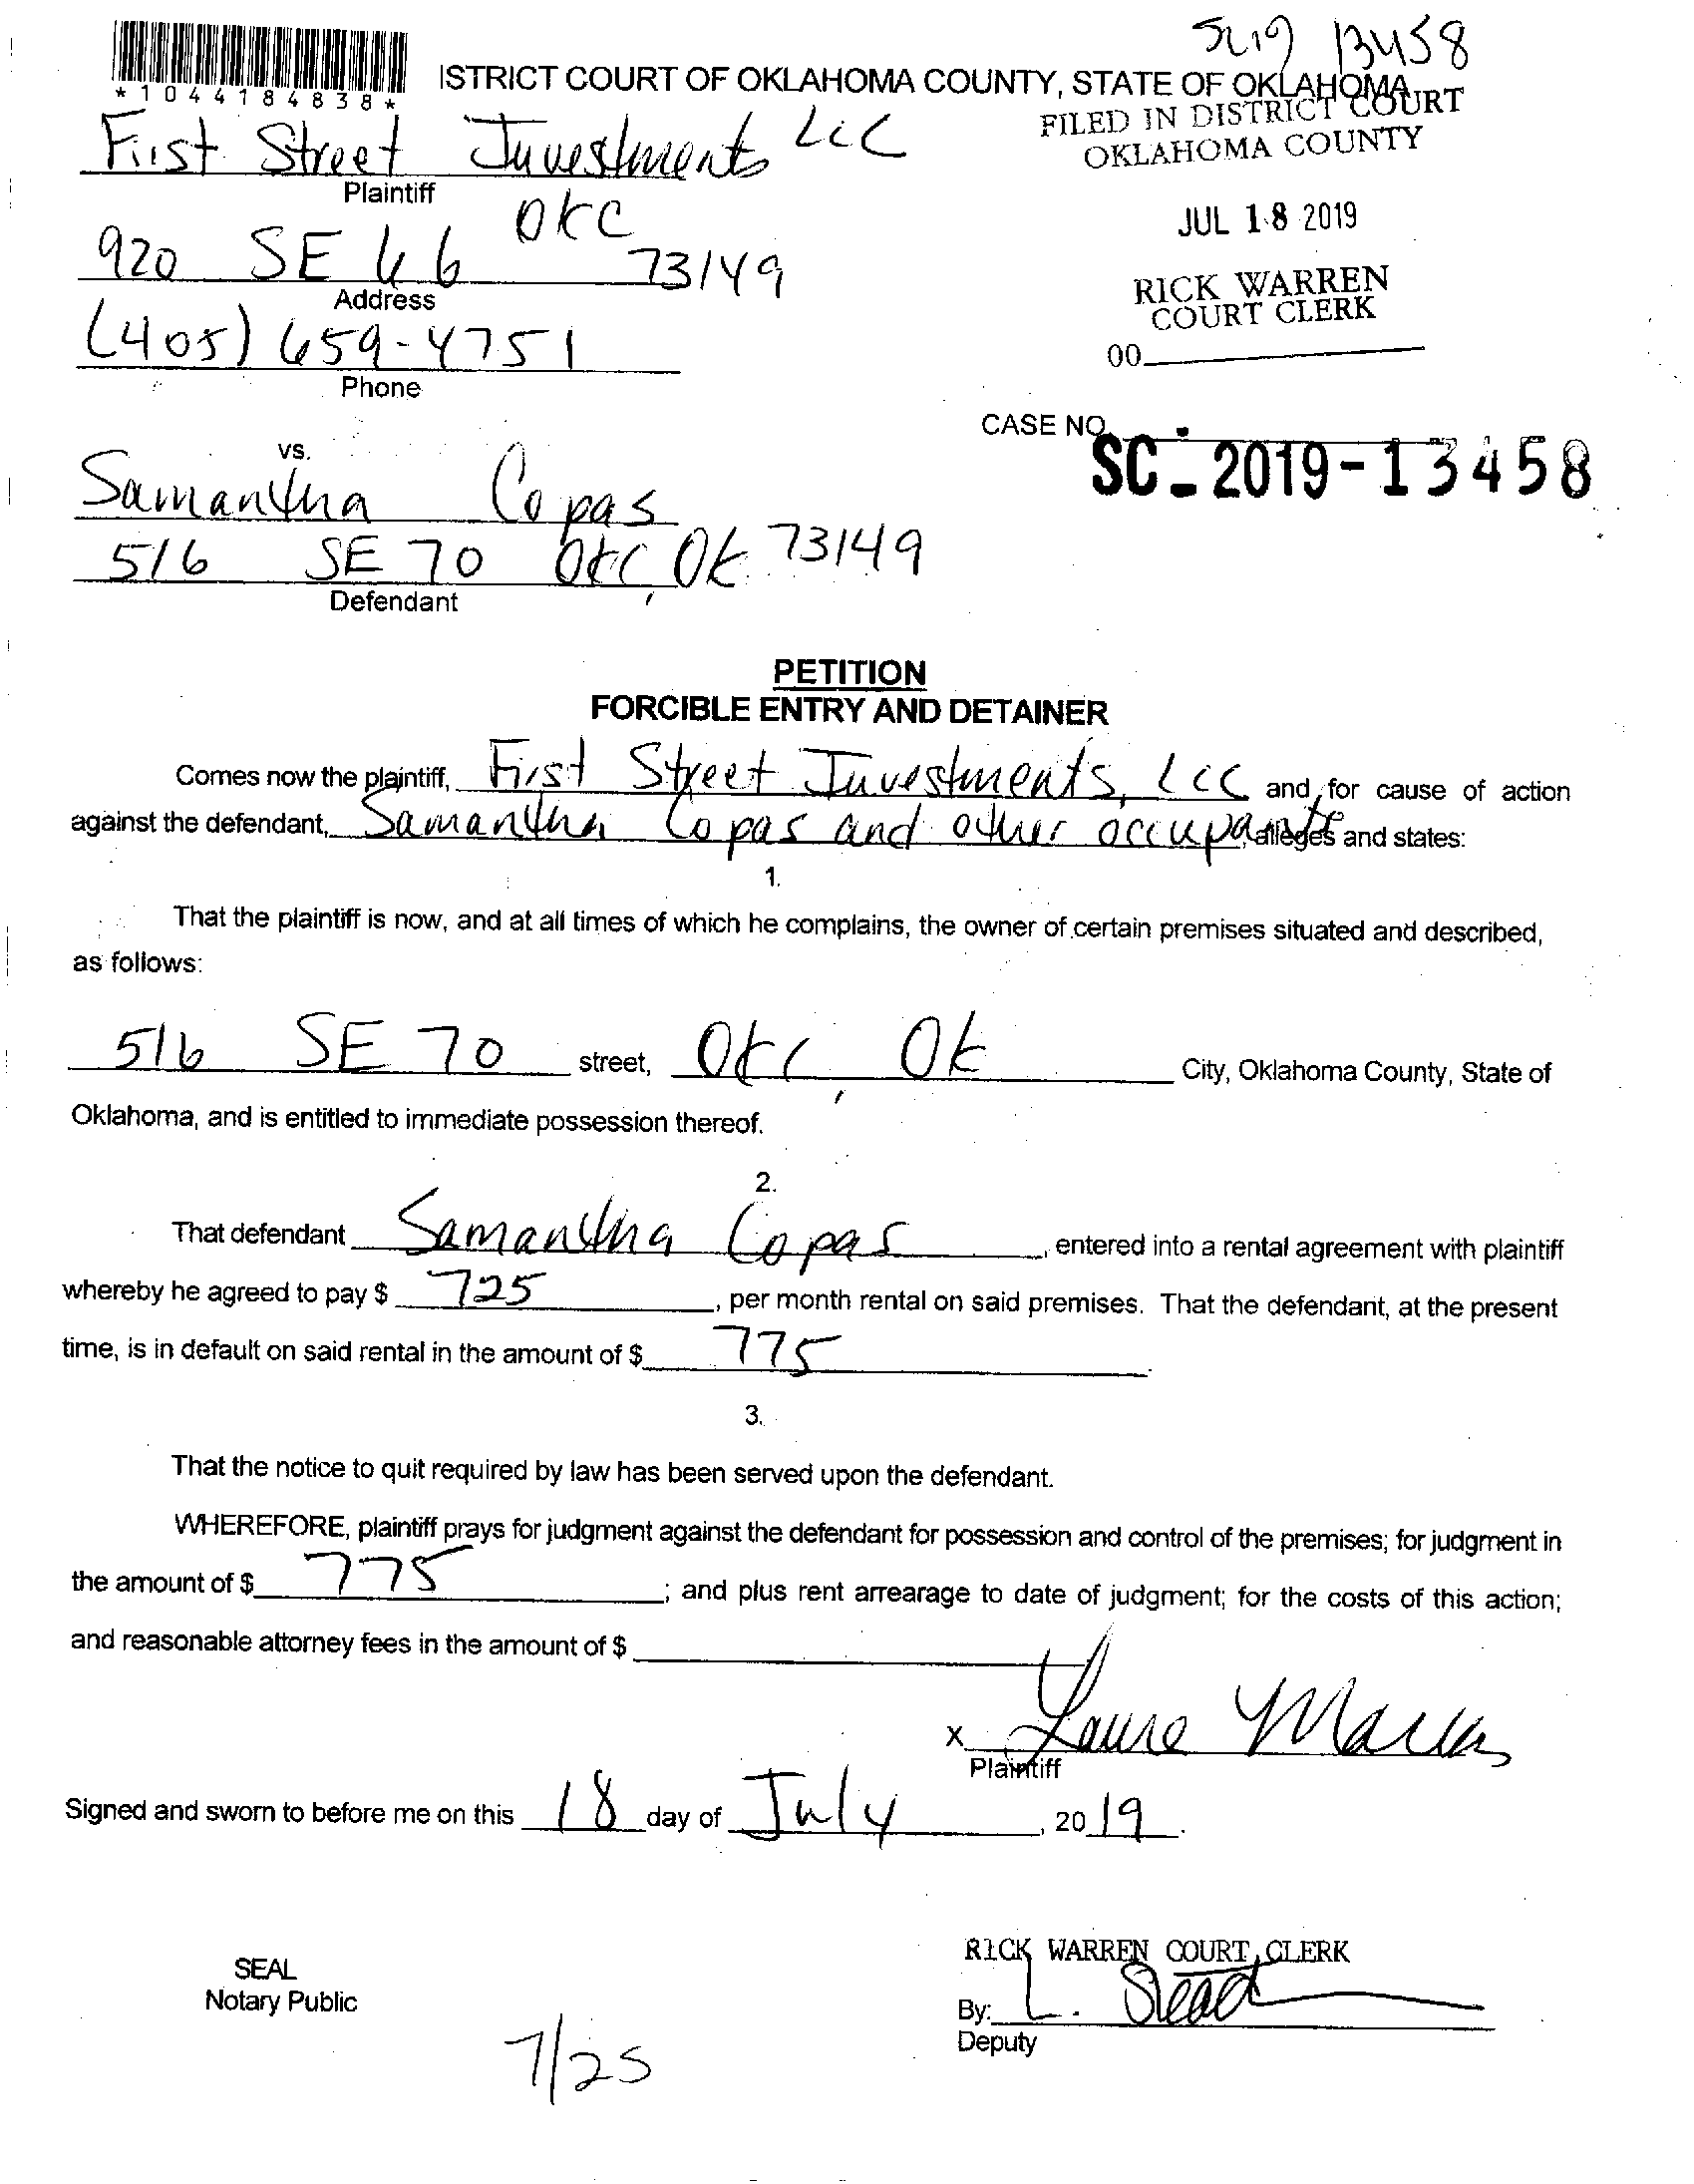 SC19 13458
*1044184838*
ISTRICT COURT OF OKLAHOMA COUNTY, STATE OF OKLAHOMA
FILED IN DISTRICT COURT
OKLAHOMA COUNTY
First Street Investments LLC
Plaintiff
JUL 18 2019
OKC
920 SE 66 73149
Address
RICK WARREN
COURT CLERK
(405) 659-4751
Phone
00
CASE NO.
SC-2019-13458
vs.
Samantha Copas
516 SE 70 OKC, OK 73149
Defendant
PETITION
FORCIBLE ENTRY AND DETAINER
Comes now the plaintiff, First Street Investments, LLC and for cause of action
against the defendant, Samantha Copas and other occupants alleges and states:
1.
That the plaintiff is now, and at all times of which he complains, the owner of certain premises situated and described,
as follows:
516 SE 70 street, OKC, OK City, Oklahoma County, State of
Oklahoma, and is entitled to immediate possession thereof.
2.
That defendant Samantha Copas, entered into a rental agreement with plaintiff
whereby he agreed to pay $ 725, per month rental on said premises. That the defendant, at the present
time, is in default on said rental in the amount of $ 775.
3.
That the notice to quit required by law has been served upon the defendant.
WHEREFORE, plaintiff prays for judgment against the defendant for possession and control of the premises; for judgment in
the amount of $ 775; and plus rent arrearage to date of judgment; for the costs of this action;
and reasonable attorney fees in the amount of $
X
Plaintiff
Signed and sworn to before me on this 18 day of July, 2019.
RICK WARREN COURT CLERK
SEAL
Notary Public
By: L. Stead
Deputy
7/25